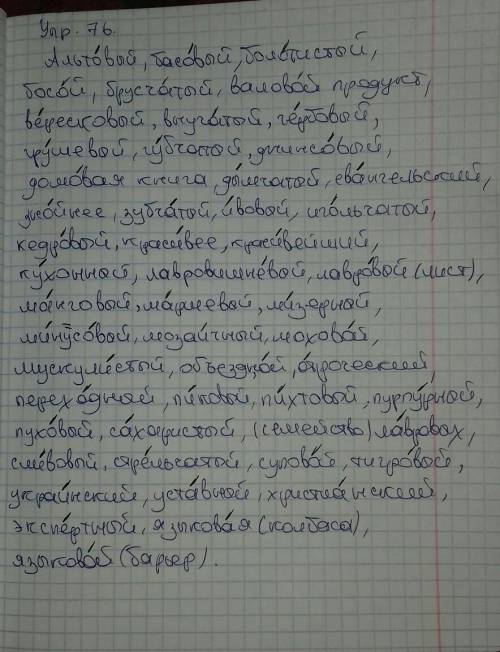 Упр. 76.
Альто́вый, басо́вый, боло́тистый,
босо́й, брусча́тый, валово́й продукт,
ве́ресковый, внуча́тый, ге́рбовый,
гру́шевый, гу́бчатый, джинсо́вый,
домо́вая книга, ды́мчатый, ева́нгельский,
зно́йнее, зубча́тый, и́вовый, иго́льчатый,
кедро́вый, краси́вее, краси́вейший,
ку́хонный, лаврови́шнёвый, лавро́вый (лист),
ма́нговый, ма́рлевый, ми́зерный,
ми́нусо́вый, мозаи́чный, мохово́й,
мускули́стый, объездно́й, о́троческий,
перехо́дный, пи́ковый, пи́хтовый, пурпу́рный,
пухо́вый, са́харистый, (семейство) ла́вровых,
сли́вовый, стре́льчатый, сулово́й, тигро́вый,
украи́нский, уста́вный, христиа́нский,
экспе́ртный, языко́вая (колбаса),
языково́й (барьер).